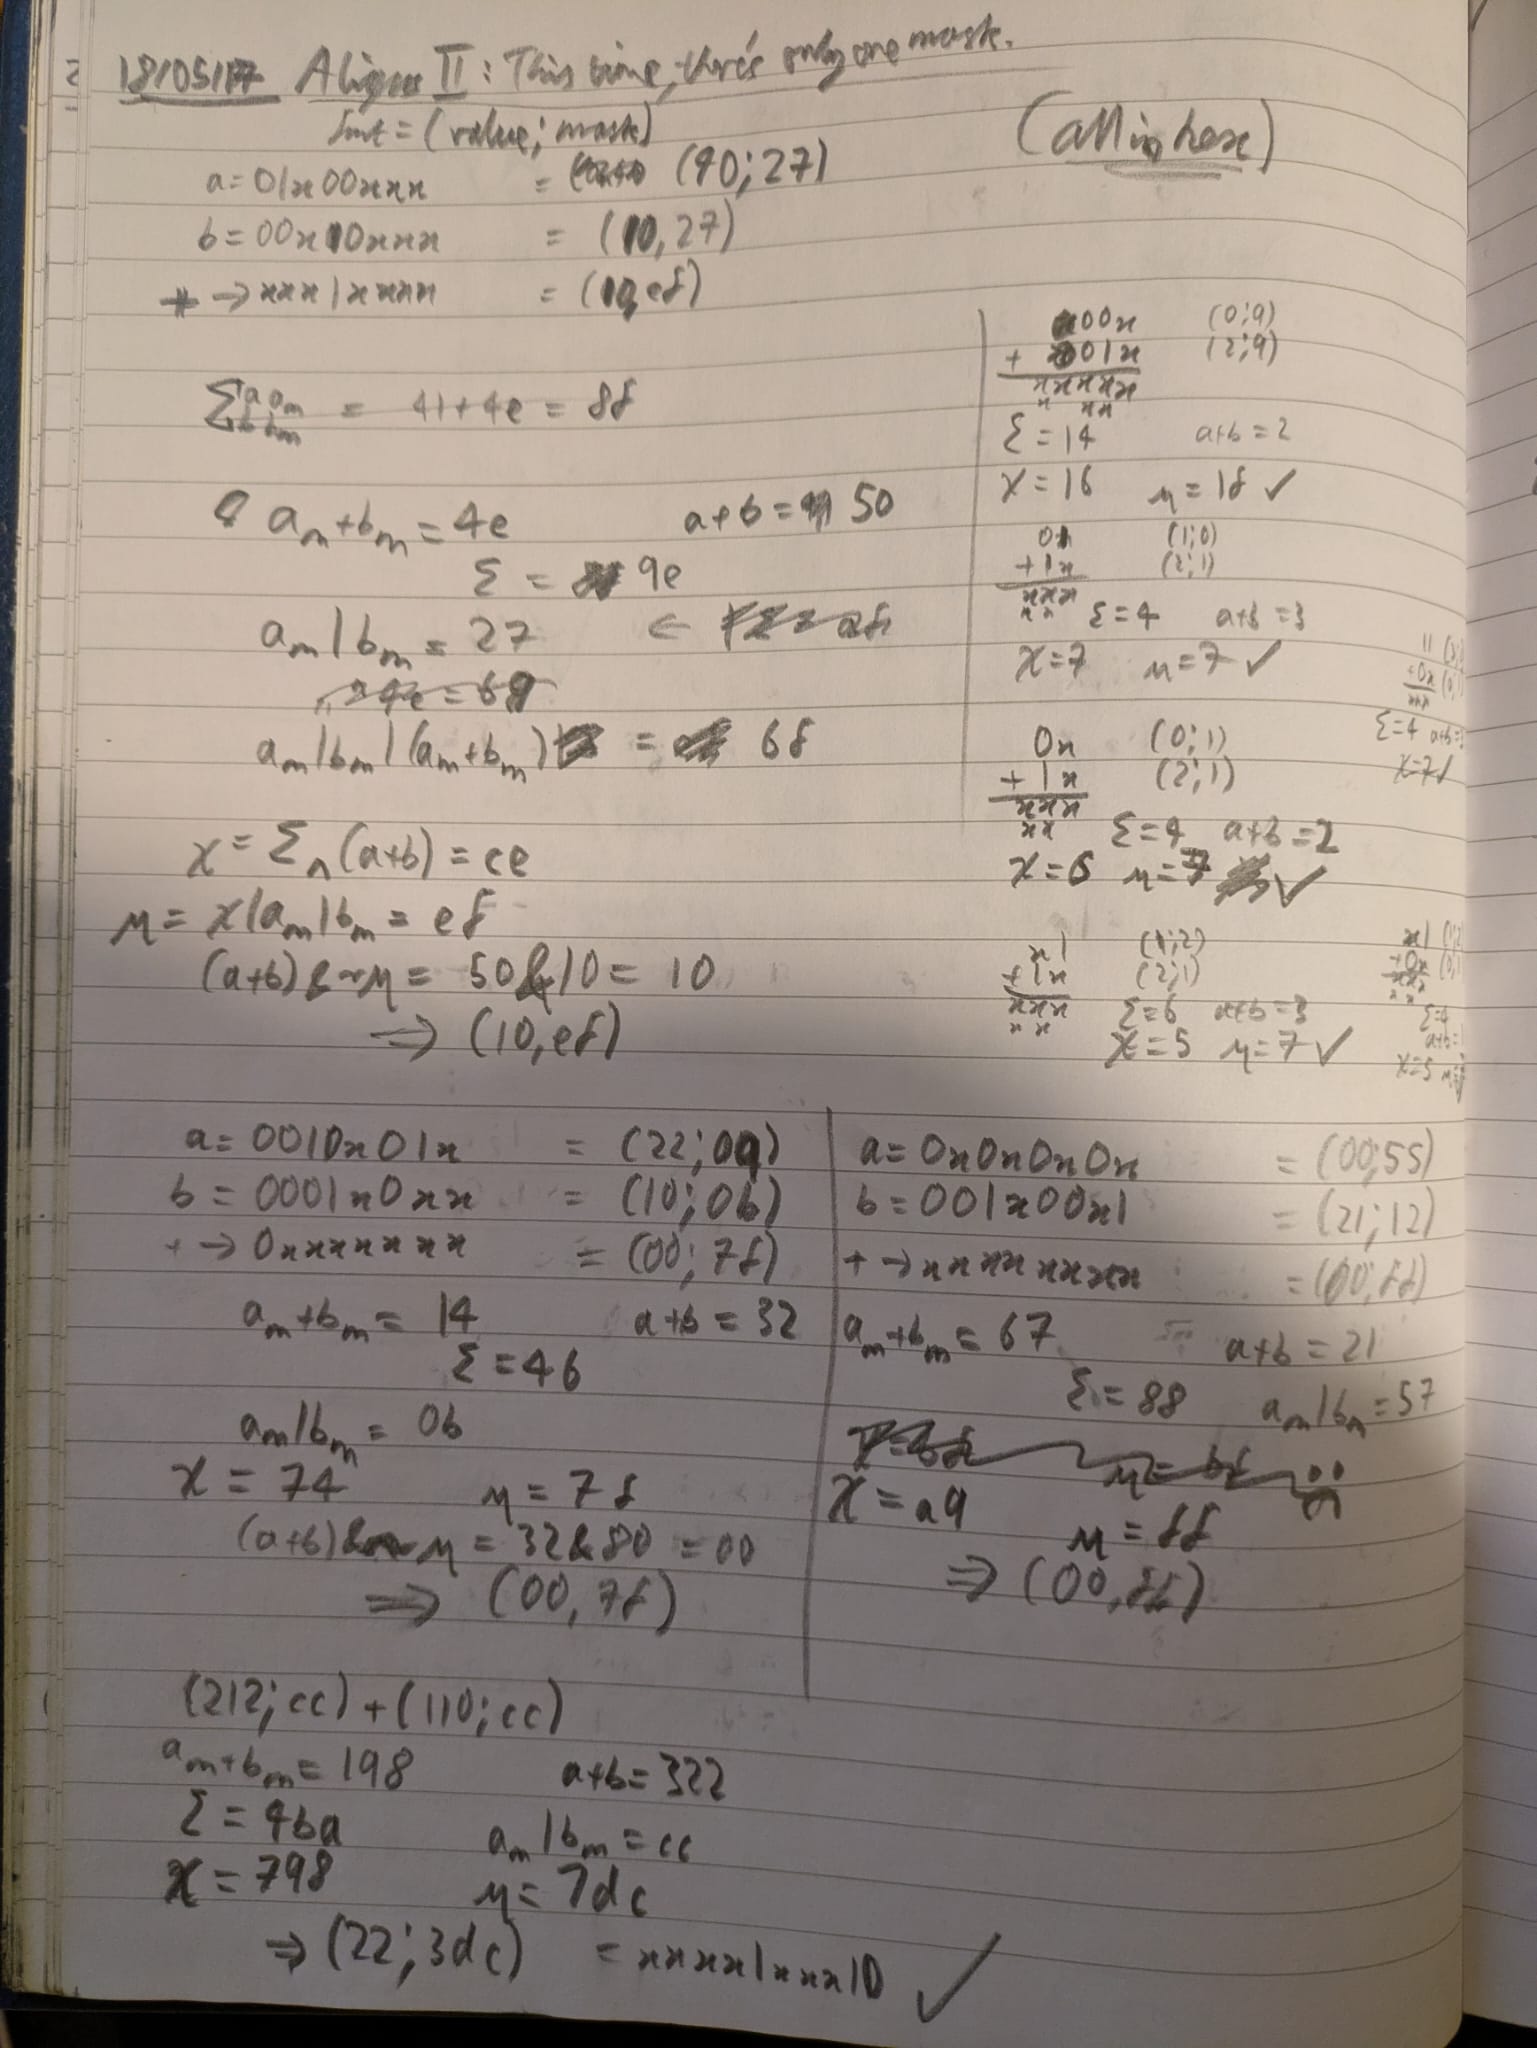 18/05/17 Align II: This time, there's only one mask.
tnt = (value; mask)
(all in hex)
a = 01x00xxx = (40; 27)
b = 00x10xxx = (10, 27)
+ → xxx1xxxx = (10, ef)
Σ = 41 + 4e = 8f
am + bm = 4e a+b = 50
Σ = 9e
am | bm = 27
am | bm | (am + bm) = 6f
χ = Σ ^ (a+b) = ce
μ = χ | am | bm = ef
(a+b) & ~μ = 50 & 10 = 10
⇒ (10, ef)
00x (0; 9)
+ 01x (2; 9)
xxxxx
x xx
Σ = 14 a+b = 2
χ = 16 μ = 1f ✓
01 (1; 0)
+ 1x (2; 1)
xxx
xx
Σ = 4 a+b = 3
χ = 7 μ = 7 ✓
0x (0; 1)
+ 1x (2; 1)
xxx
xx
Σ = 4 a+b = 2
χ = 6 μ = 7 ✓
x1 (1; 2)
+ 1x (2; 1)
xxx
x x
Σ = 6 a+b = 3
χ = 5 μ = 7 ✓
11
+ 0x
xxx
Σ = 4 a+b =
χ = 7 ✓
x1
+ 0x
xxx
x x
Σ = 4
a+b =
χ = 5
a = 0010x01x = (22; 09)
b = 0001x0xx = (10; 0b)
+ → 0xxxxxxx = (00; 7f)
am + bm = 14 a+b = 32
Σ = 46
am | bm = 0b
χ = 74 μ = 7f
(a+b) & ~μ = 32 & 80 = 00
⇒ (00, 7f)
a = 0x0x0x0x = (00; 55)
b = 001x00x1 = (21; 12)
+ → xxxxxxxx = (00; ff)
am + bm = 67 a+b = 21
Σ = 88 am | bm = 57
χ = a9 μ = ff
⇒ (00, ff)
(212; cc) + (110; cc)
am + bm = 198 a+b = 322
Σ = 4ba am | bm = cc
χ = 798 μ = 7dc
⇒ (22; 3dc) = xxxx1xxx10 ✓